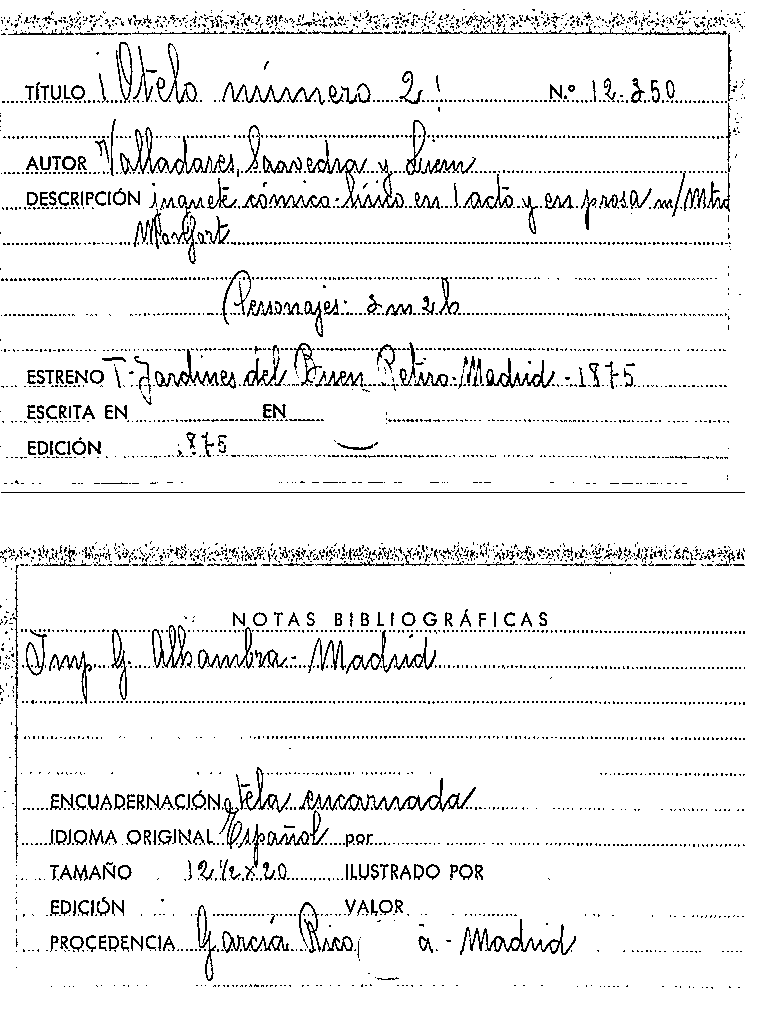 TÍTULO ¡Otelo número 2! N.º 12.350
AUTOR Valladares, Saavedra y
DESCRIPCIÓN juguete cómico-lírico en 1 acto y en prosa m/Mtro
Monfort
Personajes: 3m 2h
ESTRENO T. Jardines del Buen Retiro. Madrid - 1875
ESCRITA EN EN
EDICIÓN 1875
NOTAS BIBLIOGRÁFICAS
Imp. G. Alhambra - Madrid
ENCUADERNACIÓN tela encarnada
IDIOMA ORIGINAL Español por
TAMAÑO 12 1/2 x 20 ILUSTRADO POR
EDICIÓN VALOR
PROCEDENCIA García Rico, a - Madrid